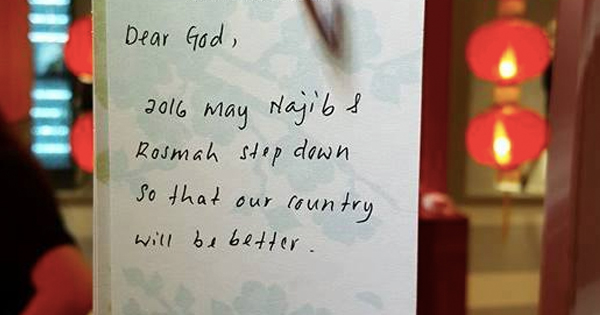 Dear God,
2016 may Najib &
Rosmah step down
so that our country
will be better.